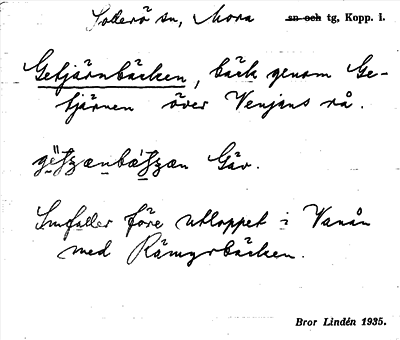 Sollerö sn, Mora sn och tg, Kopp. l.
Getjärnbäcken, bäck genom Ge-
tjärnen över Venjans rå.
Gäv.
Sınfaller före utloppet i Vanån
med Rämyrbäcken.
Bror Lindén 1935.